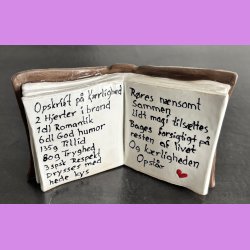 Opskrift på Kærlighed
2 Hjerter i brand
1dl Romantik
6dl God humor
135g Tillid
80g Tryghed
3spsk Respekt
Drysses med
hede kys
Røres nænsomt
Sammen
Lidt magi tilsættes
Bages forsigtigt på
resten af livet
Og Kærligheden
Opstår